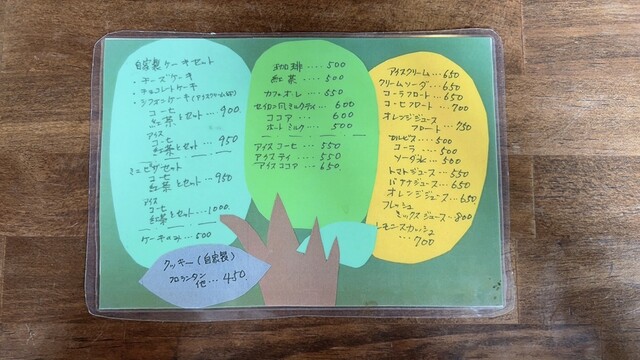 自家製ケーキセット
・チーズケーキ
・チョコレートケーキ
・シフォンケーキ(アイスクリーム付)
コーヒ
紅茶とセット…900
アイス
コーヒ
紅茶とセット…950
ミニピザセット
コーヒ
紅茶とセット…950
アイス
コーヒ
紅茶とセット…1000
ケーキのみ…500
クッキー(自家製)
フロランタン
他…450
珈琲....500
紅茶....500
カフェオーレ....550
セイロン風ミルクティ...600
ココア...600
ホットミルク...500
アイスコーヒ...550
アイスティ....550
アイスココア...650
アイスクリーム...650
クリームソーダ...650
コーラフロート...650
コーヒフロート...700
オレンジジュース
フロート...750
カルピス...500
コーラ...500
ソーダ水...500
トマトジュース...550
バナナジュース...650
オレンジジュース...650
フレッシュ
ミックスジュース...800
レモンスカッシュ
...700